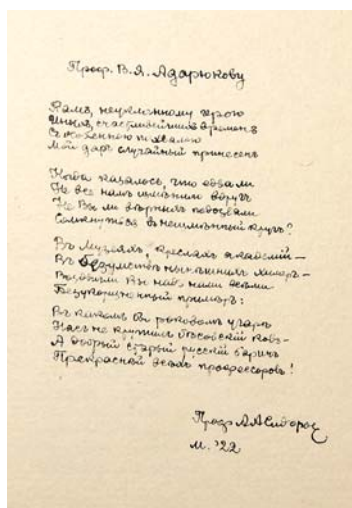 Проф. В. Я. Адарюкову
Вамъ, неуклонному герою
Иныхъ, счастливѣйшихъ временъ
Съ особенною похвалою
Мой даръ случайный принесенъ
Когда казалось, что едва ли
Не все намъ измѣнило вдругъ
Не Вы ли вѣрныхъ подозвали
Сомкнуться въ неизмѣнный кругъ?
Въ Музеяхъ, креслахъ академій —
Въ безумствѣ нынѣшнихъ химеръ —
Вы надъ нами всѣми
Безукоризненный примѣръ:
Въ какомъ бы роковомъ угарѣ
Насъ не кружилъ бѣсовскій ковъ —
А добрый старый русскій баринъ
Прекраснѣй всѣхъ профессоровъ!
Проф. А.А. Сидоров
М. '22